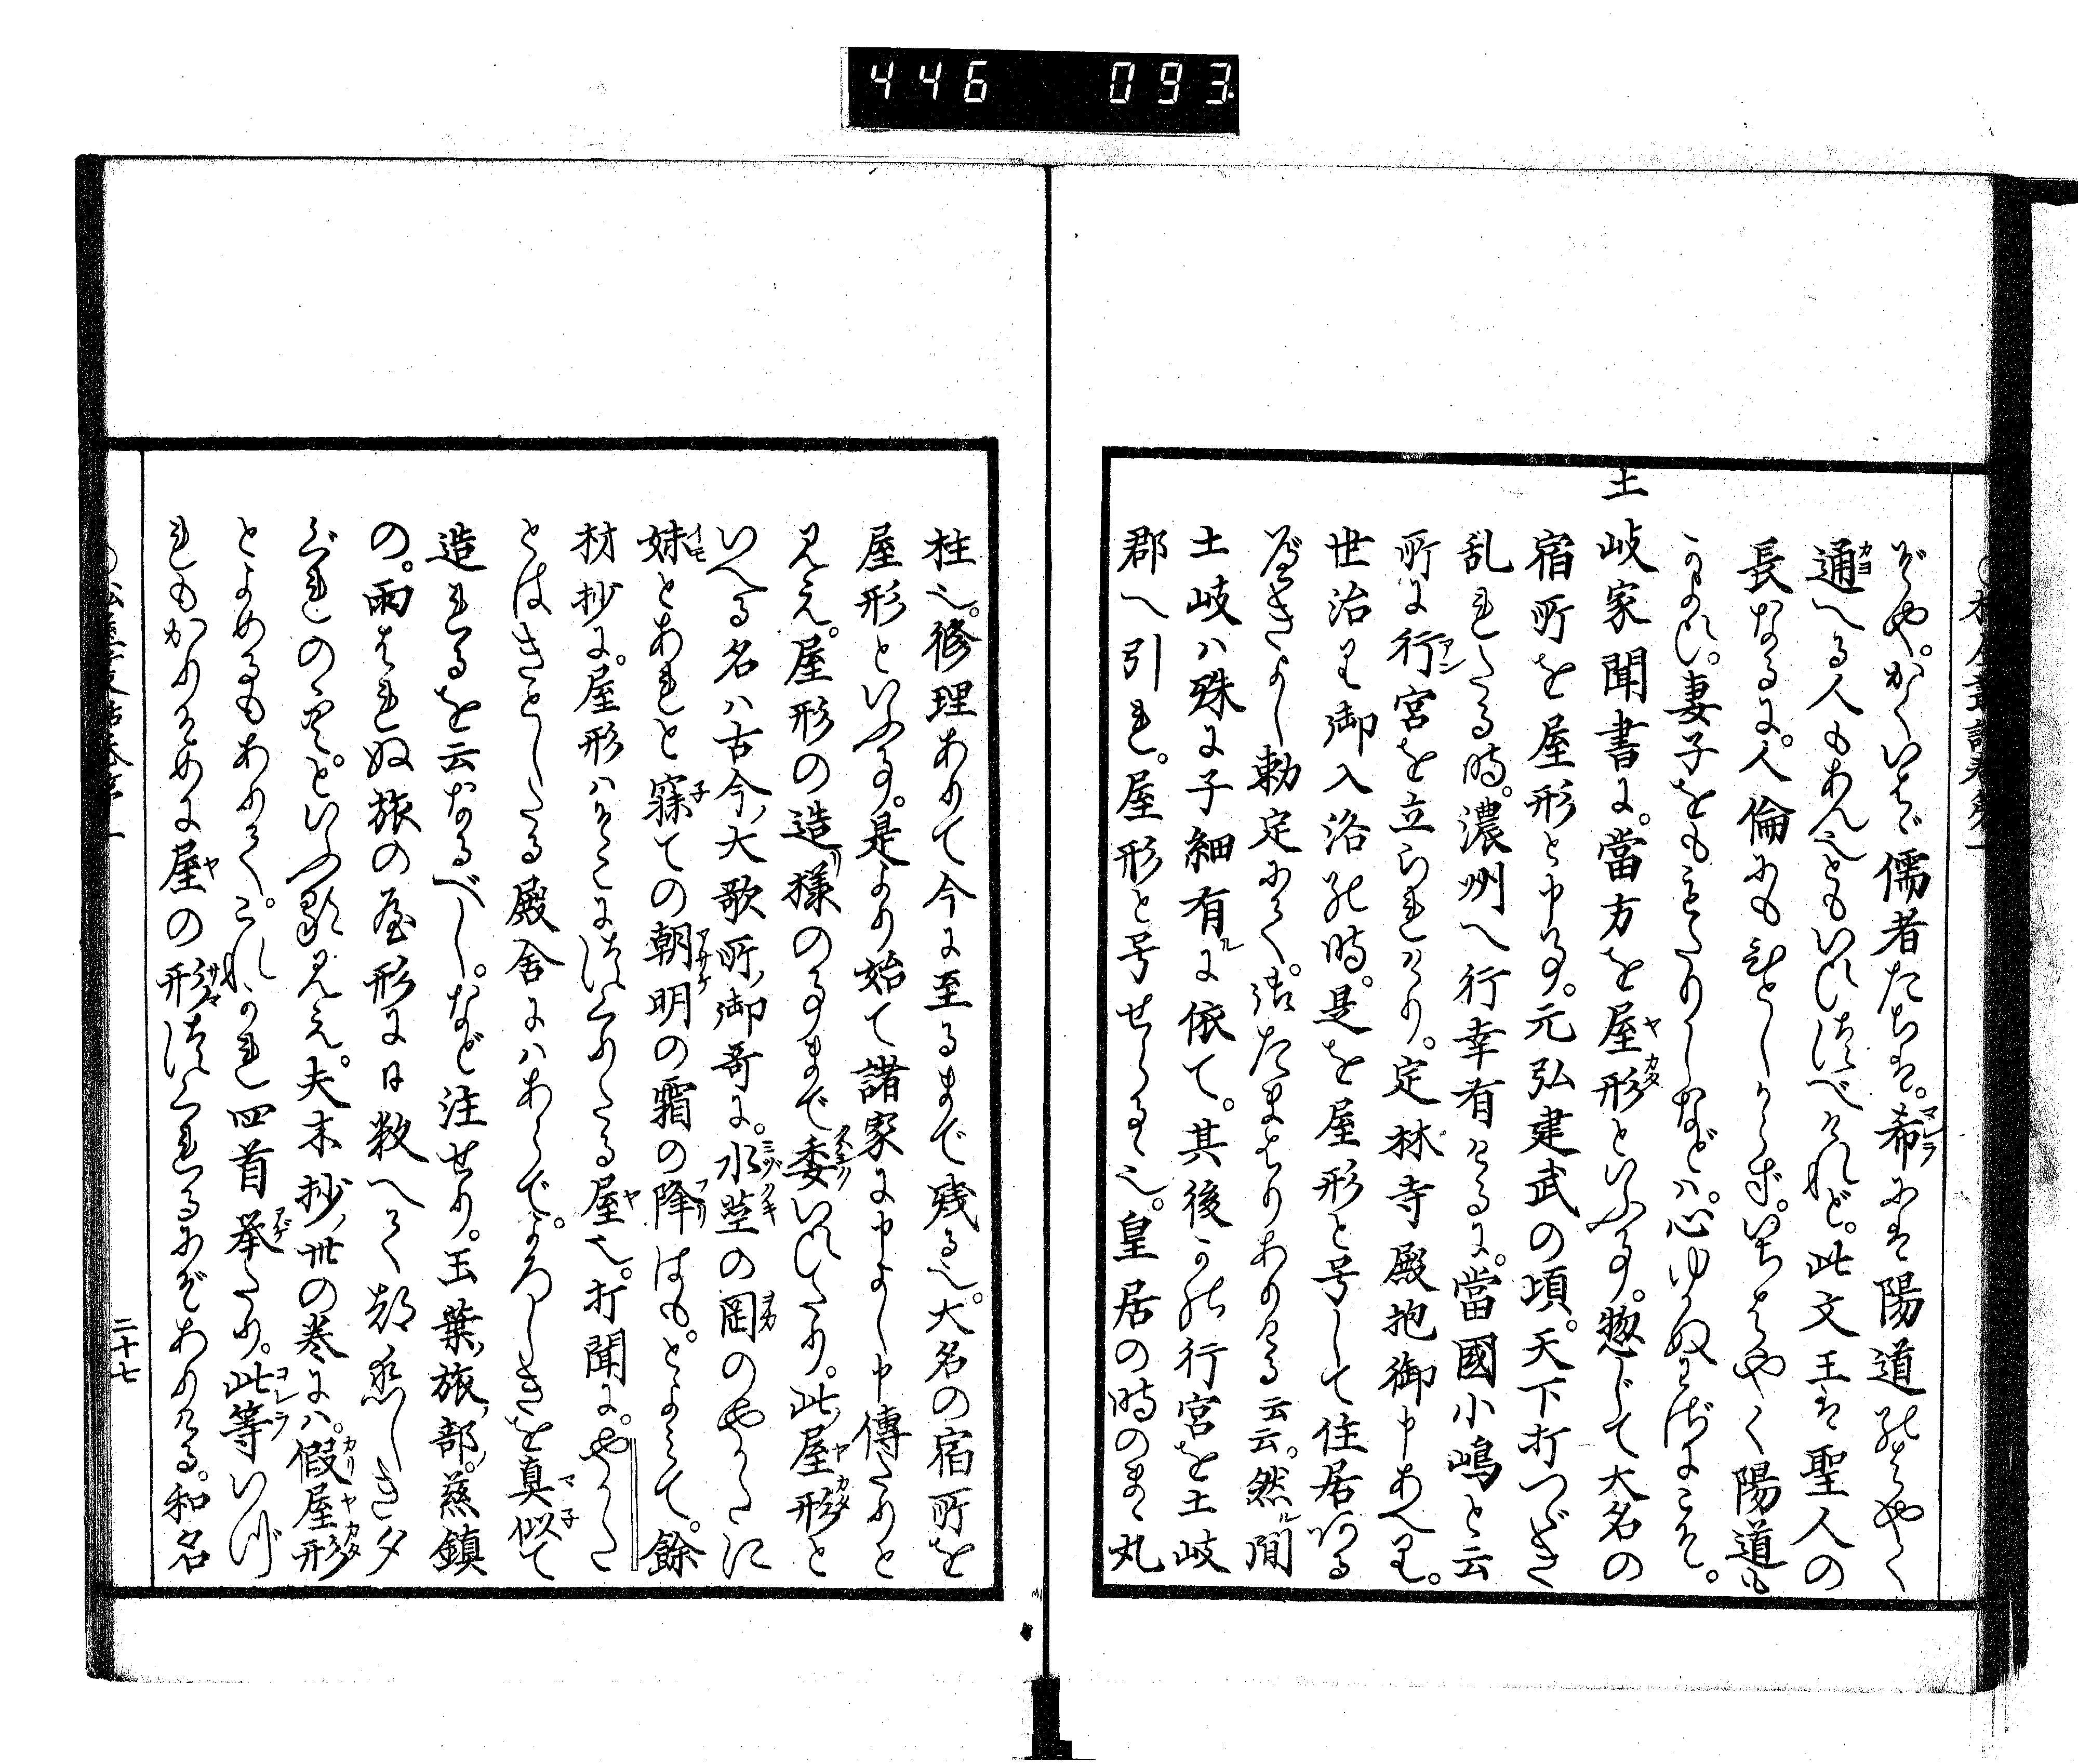 446 093
ぞや。かくいはゞ儒者たちは。希には陽道のはやく
通へる人もあんへともいひつべけれど。此文王は聖人の
長なるに。人倫にもひとしからず。いちはやく陽道も
かよひ。妻子をももたりしなどハ。心ゆかぬわざにこそ。
土岐家聞書に。當方を屋形といふ事。惣じて大名の
宿所を屋形と申事。元弘建武の頃。天下打つゞき
乱れたる時。濃州へ行幸有けるに。當國小嶋と云
所に行宮を立られけり。定林寺殿抱御申あへり。
世治り御入洛の時。是を屋形と号して住居ある
べきよし勅定にて。御たまはりありける云云。然ル間
土岐ハ殊に子細有ルに依て。其後かの行宮を土岐
郡へ引れ。屋形と号せらるゝ也。皇居の時のまゝ丸
柱也。修理ありて今に至るまで残る也。大名の宿所を
屋形といふ事。是より始て諸家に申よし申傳たりと
見え。屋形の造様の事まで委いひたり。此屋形と
いへる名ハ古今大歌所御哥に。水莖の岡のやかたに
妹とあれと寐ての朝明の霜の降はも。とよみて。餘
材抄に。屋形ハかりにつくりたる屋也。打聞に。やかた
とはきとしたる殿舎にハあらで。よろしきを真似て
造れるを云なるべし。など注せり。玉葉旅部。慈鎮
の。雨はれぬ旅の屋形に日数へて都恋しき夕
ぐれの空。といふ歌見え。夫木抄卅の巻にハ。假屋形
とよめるもありて。これかれ四首挙たり。此等いづ
れもかりそめに屋の形つくれるにぞありける。和名
二十七